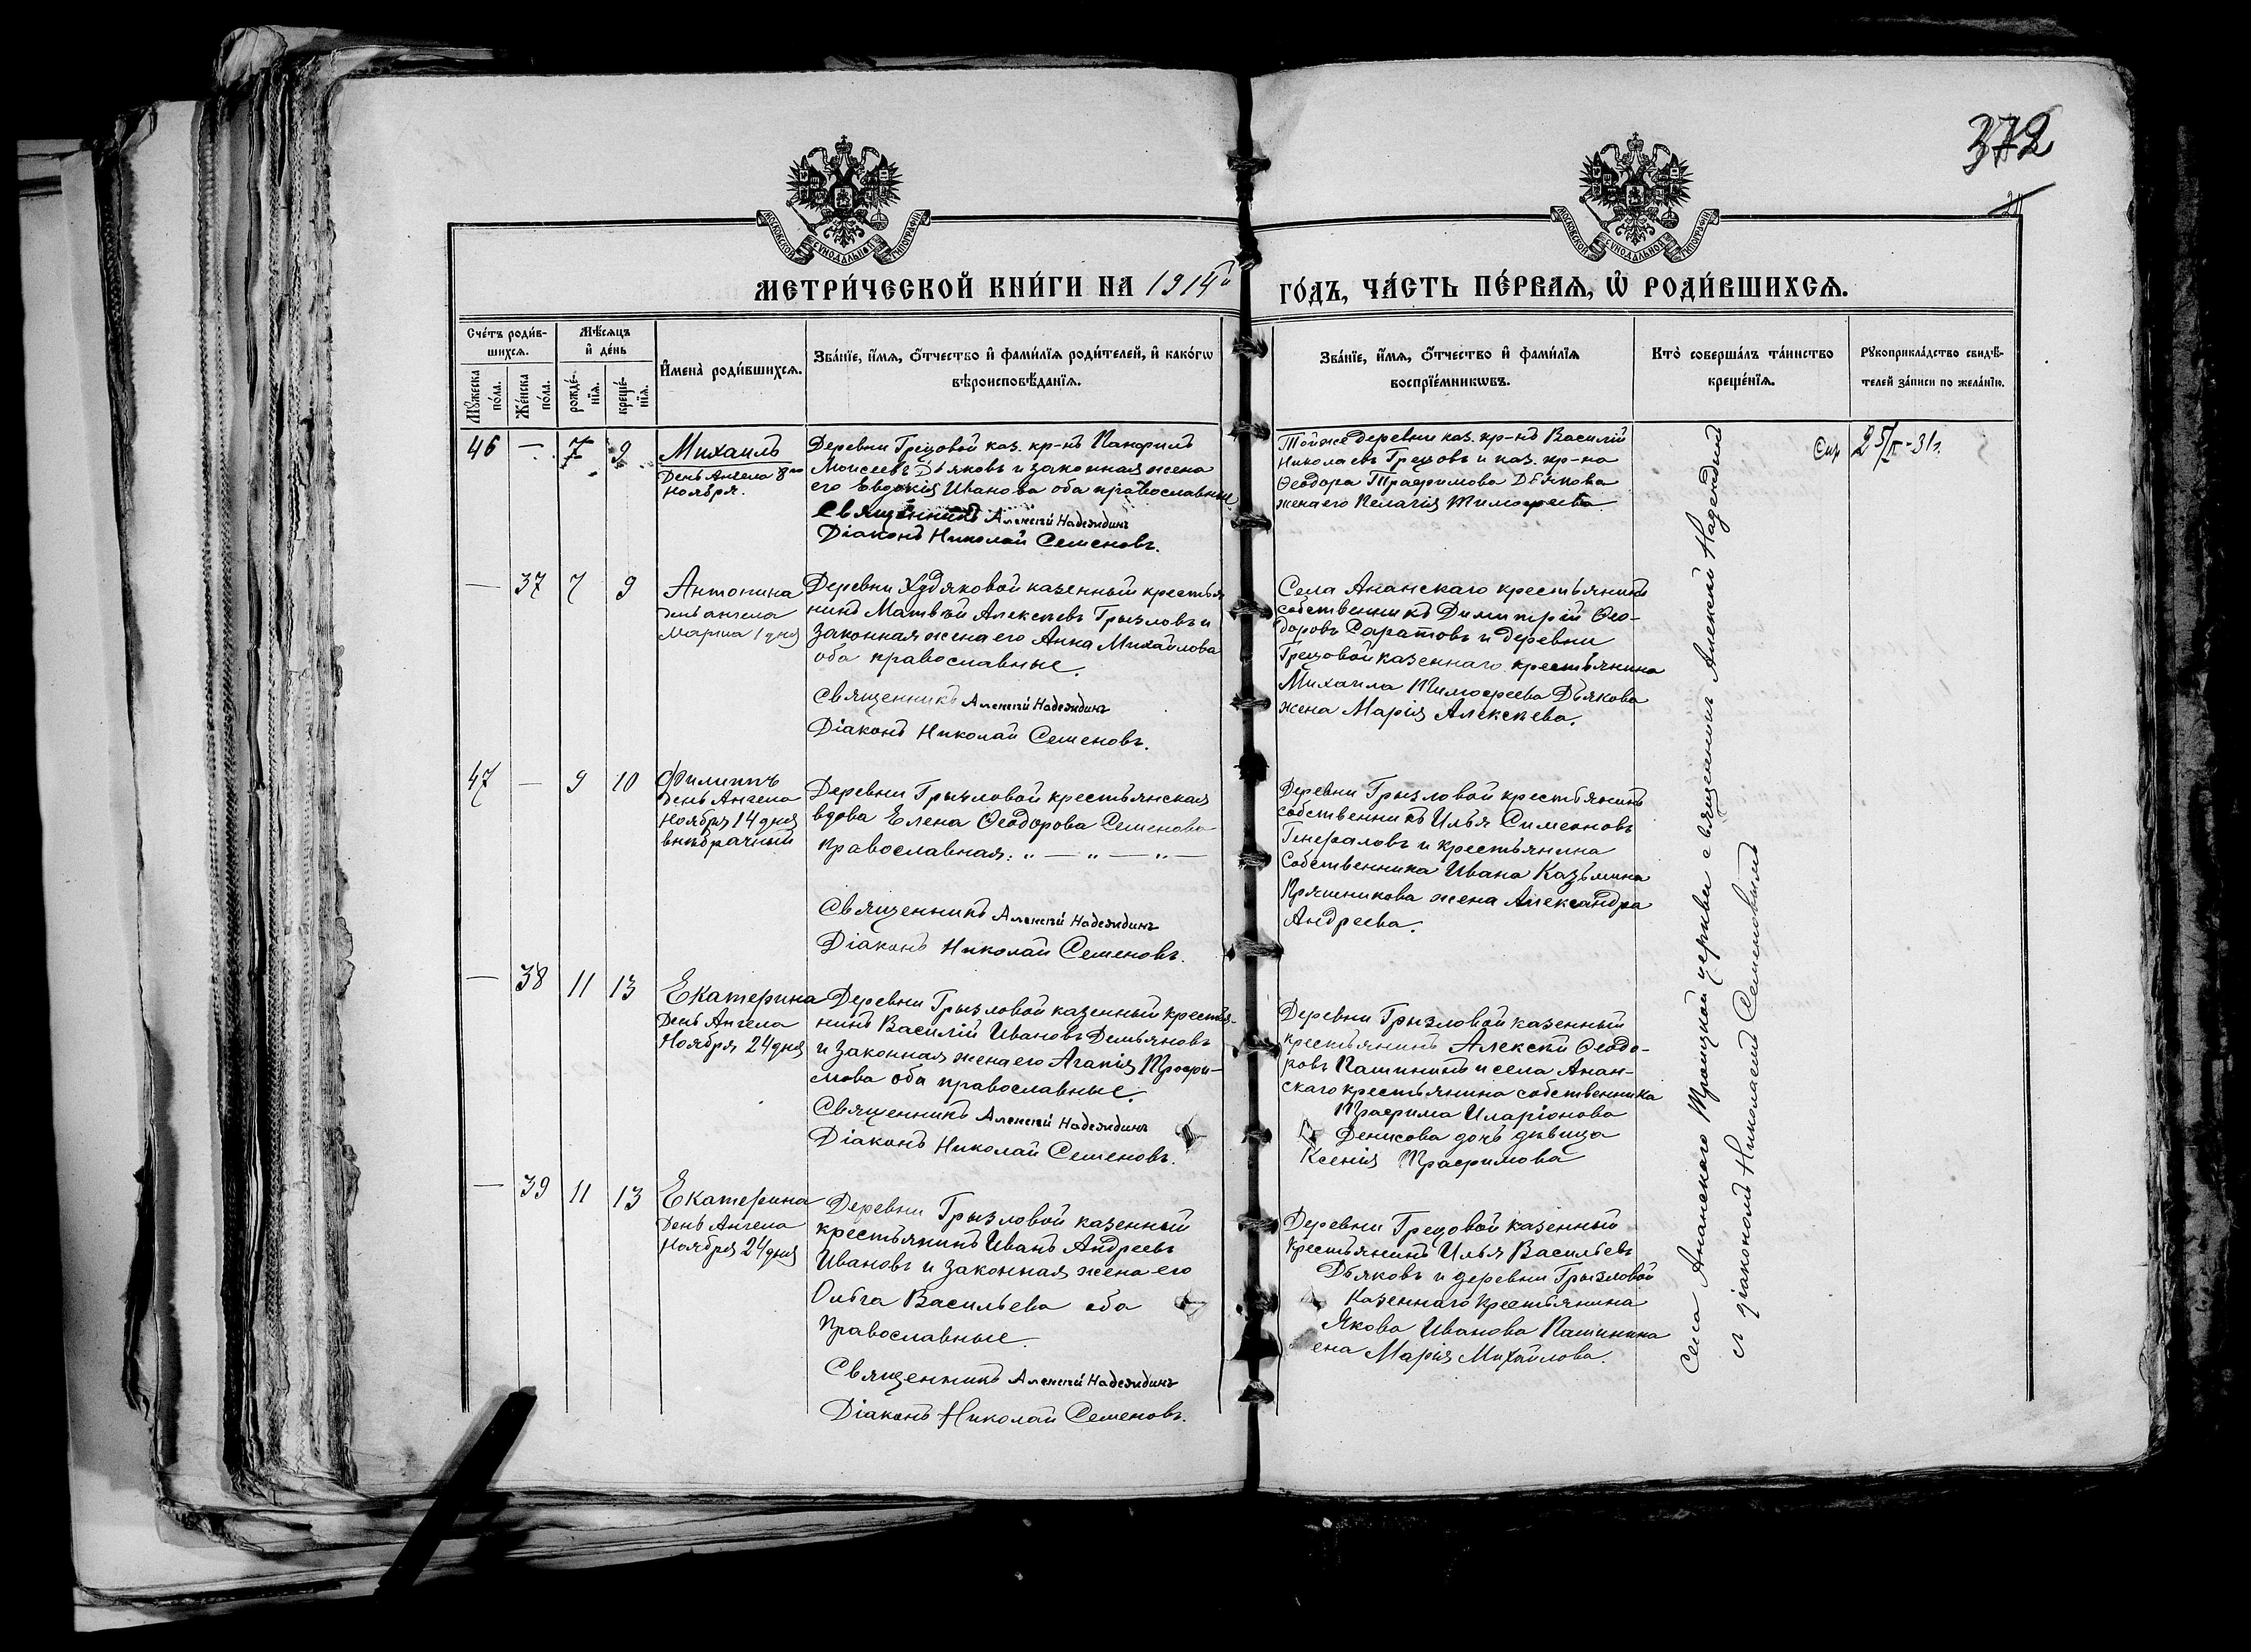 372
МОСКОВСКОЙ СУНОДАЛЬНОЙ ТИПОГРАФІИ
МОСКОВСКОЙ СУНОДАЛЬНОЙ ТИПОГРАФІИ
МЕТРИ́ЧЕСКОЙ КНИ́ГИ НА 1914й
ГО́ДЪ, ЧА́СТЬ ПЕ́РВАЯ, Ѡ РОДИ́ВШИХСЯ.
Сче́тъ роди́в-
шихся.
Мꙋ́жеска
по́ла.
Же́нска
по́ла.
Мѣ́сяцъ
и де́нь
рожде́-
нїя.
креще́-
нїя.
Имена̀ роди́вшихся.
Зва́нїе, и́мя, ѻ҆́тчество и фами́лїя роди́телей, и како́гѡ
вѣроисповѣ́данїя.
Зва́нїе, и́мя, ѻ҆́тчество и фами́лїя
воспрїе́мникѡвъ.
Кто̀ соверша́лъ та́инство
креще́нїя.
Рꙋкоприкла́дство свидѣ́-
телей за́писи по жела́нїю.
46
—
7
9
Михаилъ
День Ангела 8го
Ноября.
Деревни Грецовой каз. кр-нъ Панфилъ
Моисеевъ Дьяковъ и законная жена
его Евдокія Иванова оба православные
Священникъ Алексѣй Надеждинъ
Діаконъ Николай Семеновъ.
Тойже деревни каз. кр-нъ Василій
Николаевъ Грецовъ и каз. кр-на
Ѳеодора Трафимова Дьякова
жена его Пелагія Тимофеева
25/II-31г.
—
37
7
9
Антонина
день ангела
Марта 1 дня
Деревни Худяковой казенный крестья
нинъ Матвѣй Алексѣевъ Грызловъ и
законная жена его Анна Михайлова
оба православные.
Священникъ Алексѣй Надеждинъ
Діаконъ Николай Семеновъ.
Села Ананскаго крестьянинъ
собственникъ Димитрій Ѳео-
доровъ Саратовъ и деревни
Грецовой казеннаго крестьянина
Михаила Тимофеева Дьякова
жена Марія Алексѣева.
47
—
9
10
Филиппъ
День Ангела
Ноября 14 дня
внѣбрачный
Деревни Грызловой крестьянская
вдова Елена Ѳеодорова Семенова
православная. „ — „ — „ —
Священникъ Алексѣй Надеждинъ
Діаконъ Николай Семеновъ.
Деревни Грызловой крестьянинъ
собственникъ Илья Симеоновъ
Генераловъ и крестьянина
Собственника Ивана Казьмина
Пряшникова жена Александра
Андреева.
—
38
11
13
Екатерина
День Ангела
Ноября 24 дня
Деревни Грызловой казенный крестья-
нинъ Василій Ивановъ Демьяновъ
и законная жена его Агапія Трофи-
мова оба православные.
Священникъ Алексѣй Надеждинъ
Діаконъ Николай Семеновъ.
Деревни Грызловой казенный
крестьянинъ Алексѣй Ѳеодо-
ровъ Пашининъ и села Анан-
скаго крестьянина собственника
Трафима Иларіонова
Денисова дочь дѣвица
Ксенія Трафимова
—
39
11
13
Екатерина
День Ангела
Ноября 24 дня
Деревни Грызловой казенный
крестьянинъ Иванъ Андреевъ
Ивановъ и законная жена его
Ольга Васильева оба
Православные.
Священникъ Алексѣй Надеждинъ
Діаконъ Николай Семеновъ.
Деревни Грецовой казенный
Крестьянинъ Илья Васильевъ
Дьяковъ и деревни Грызловой
Казеннаго Крестьянина
Якова Иванова Пашинина
ена Марія Михайлова.
Села Ананскаго Троицкой церкви священникъ Алексѣй Надеждинъ
съ діакономъ Николаемъ Семеновымъ